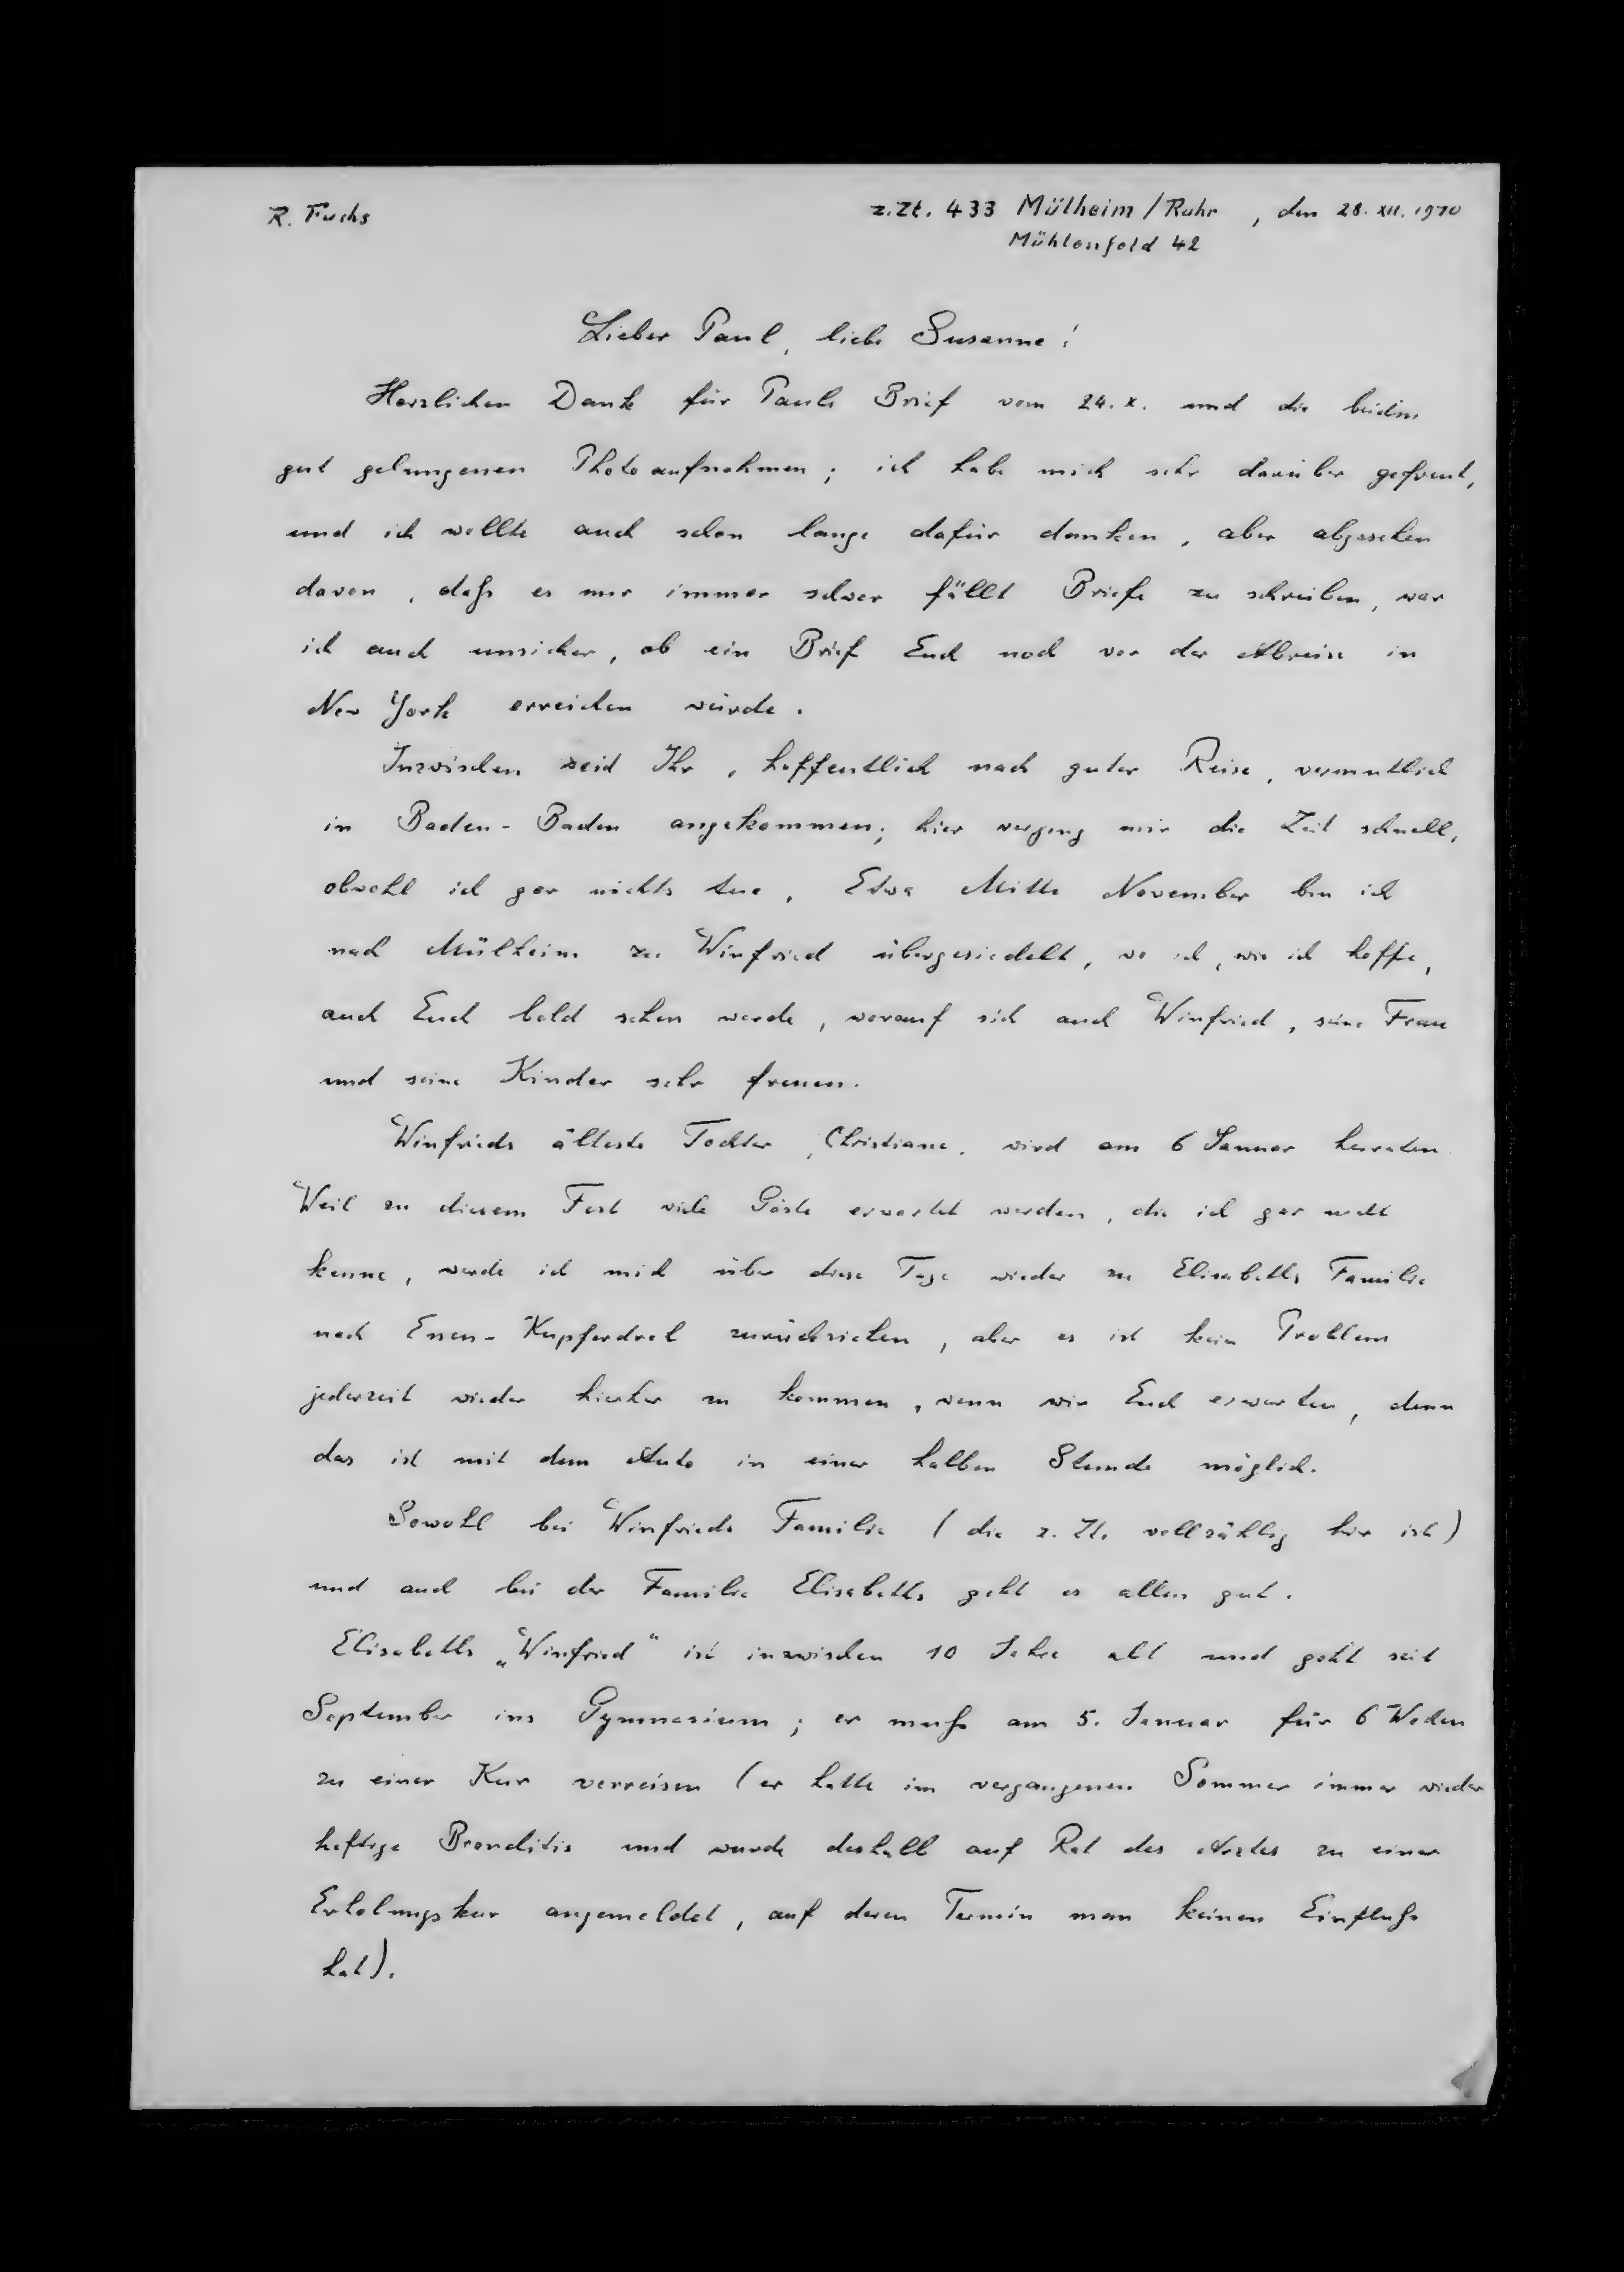 R. Fuchs
z.Zt. 433 Mülheim/Ruhr, den 28. XII. 1970
Mühlenfeld 42
Lieber Paul, liebe Susanne!
Herzlichen Dank für Pauls Brief vom 24. X. und die beiden
gut gelungenen Photoaufnahmen; ich habe mich sehr darüber gefreut,
und ich wollte auch schon lange dafür danken, aber abgesehen
davon, daß es mir immer schwer fällt Briefe zu schreiben, war
ich auch unsicher, ob ein Brief Euch noch vor der Abreise in
New York erreichen würde.
Inzwischen seid Ihr, hoffentlich nach guter Reise, vermutlich
in Baden-Baden angekommen; hier verging mir die Zeit schnell,
obwohl ich gar nichts tue. Etwa Mitte November bin ich
nach Mülheim zu Winfried übergesiedelt, wo ich, wie ich hoffe,
auch Euch bald sehen werde, worauf sich auch Winfried, seine Frau
und seine Kinder sehr freuen.
Winfrieds älteste Tochter, Christiane, wird am 6 Januar heiraten.
Weil zu diesem Fest viele Gäste erwartet werden, die ich gar nicht
kenne, werde ich mich über diese Tage wieder zu Elisabeths Familie
nach Essen-Kupferdreh zurückziehen, aber es ist kein Problem
jederzeit wieder hierher zu kommen, wenn wir Euch erwarten, denn
das ist mit dem Auto in einer halben Stunde möglich.
Sowohl bei Winfrieds Familie (die z. Zt. vollzählig hier ist)
und auch bei der Familie Elisabeths geht es allen gut.
Elisabeths „Winfried“ ist inzwischen 10 Jahre alt und geht seit
September ins Gymnasium; er muß am 5. Januar für 6 Wochen
zu einer Kur verreisen (er hatte im vergangenen Sommer immer wieder
heftige Bronchitis und wurde deshalb auf Rat des Arztes zu einer
Erholungskur angemeldet, auf deren Termin man keinen Einfluß
hat).